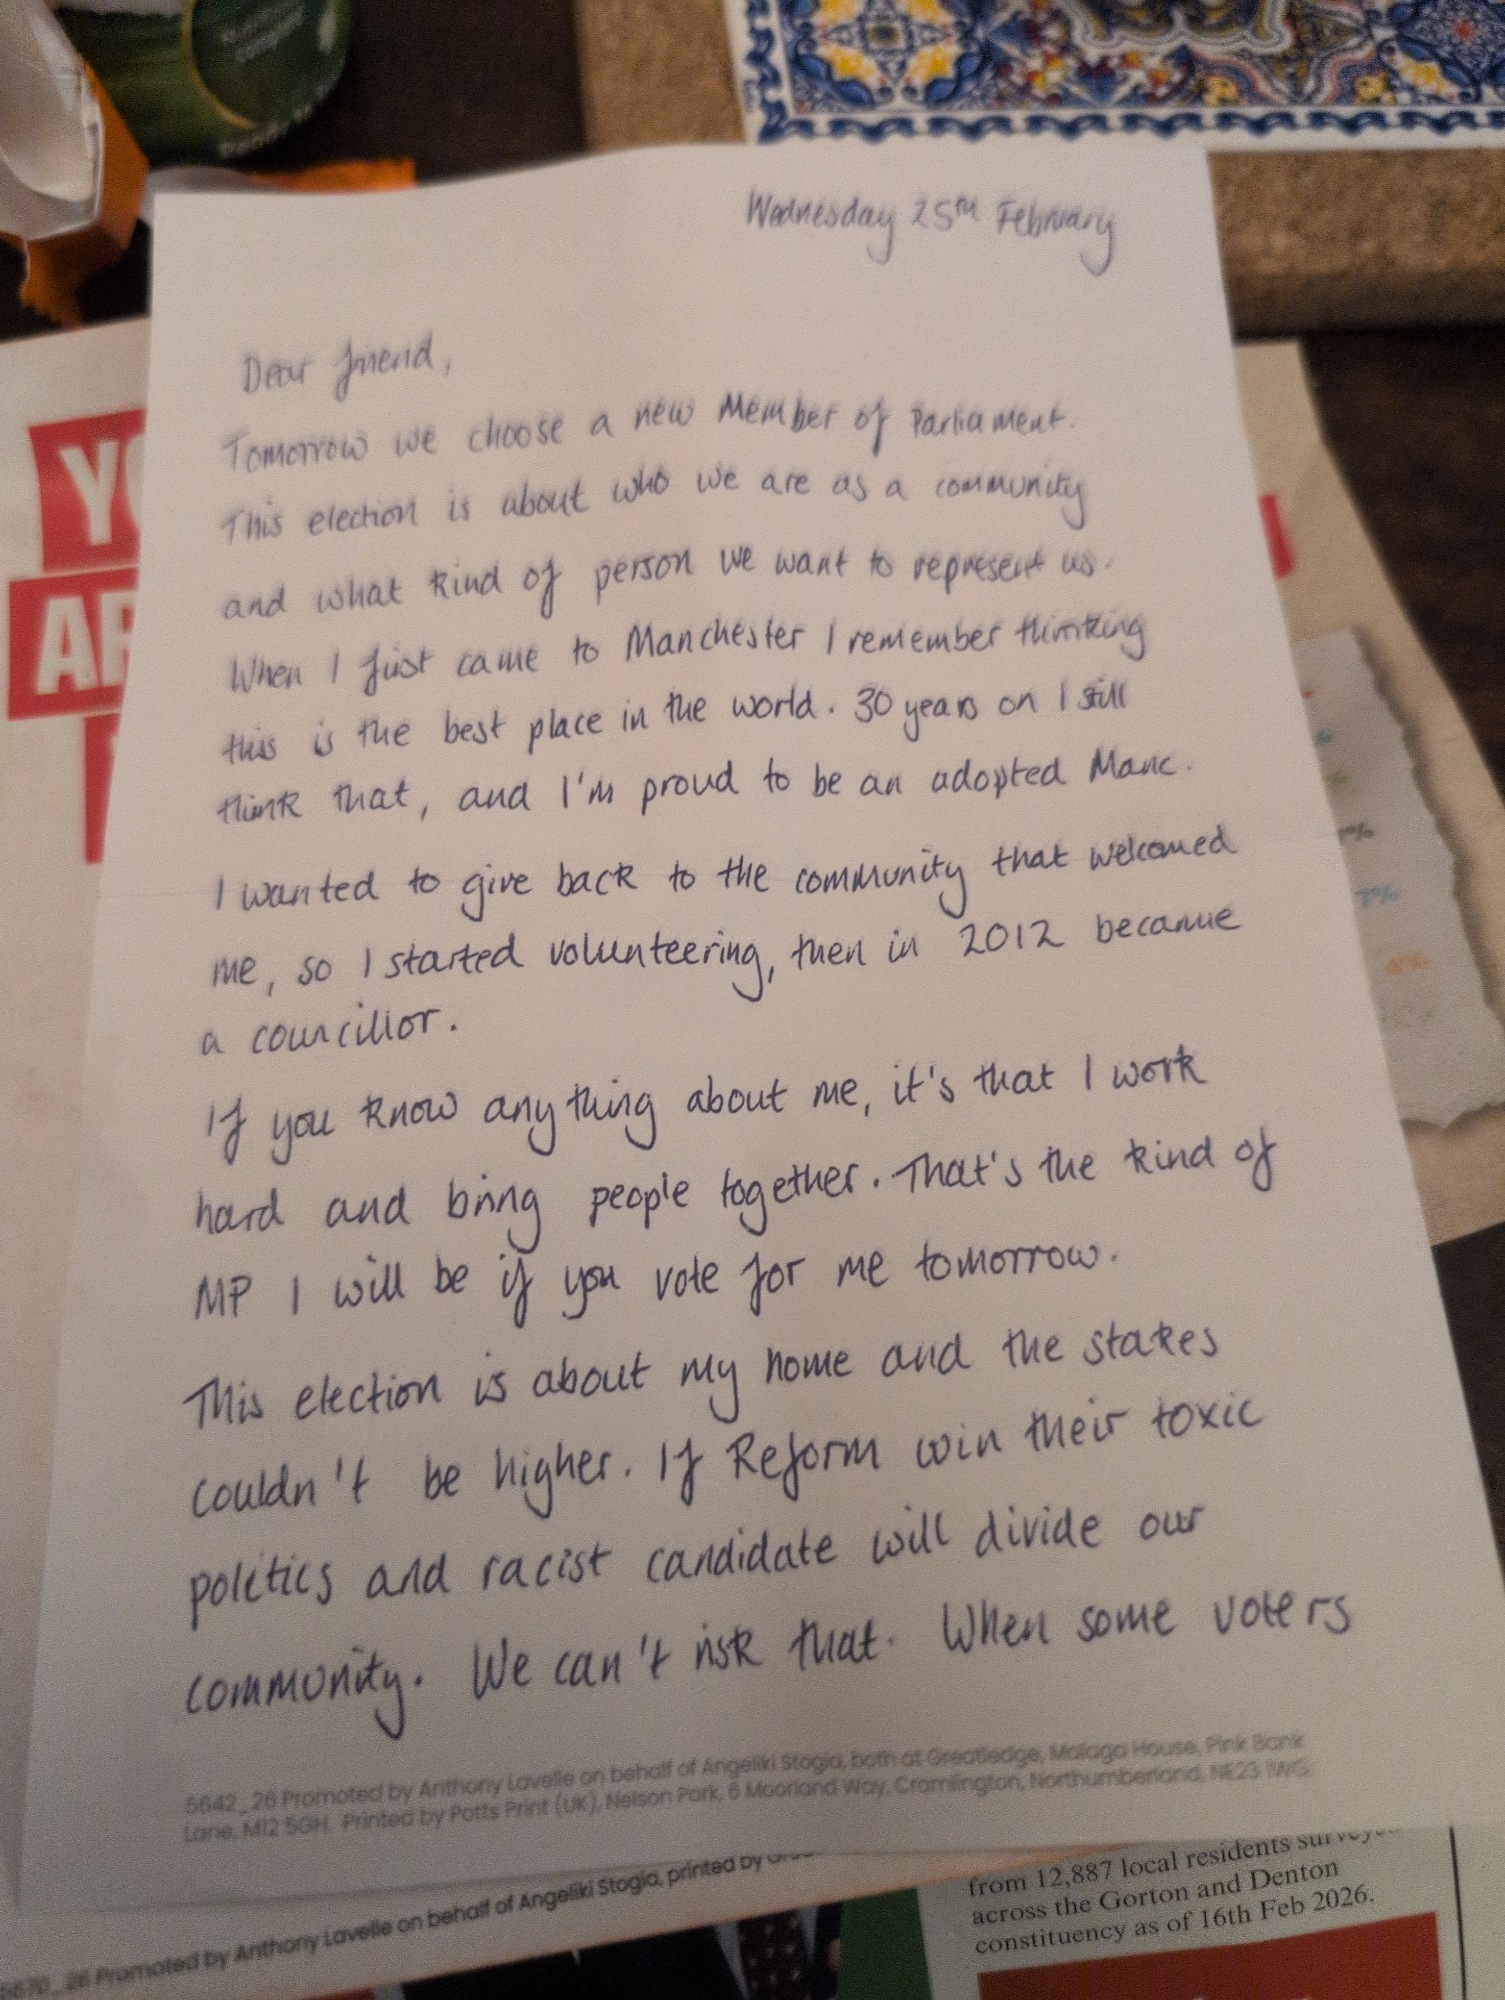 Wednesday 25th February
Dear friend,
Tomorrow we choose a new Member of Parliament.
This election is about who we are as a community
and what kind of person we want to represent us.
When I first came to Manchester I remember thinking
this is the best place in the world. 30 years on I still
think that, and I'm proud to be an adopted Manc.
I wanted to give back to the community that welcomed
me, so I started volunteering, then in 2012 became
a councillor.
If you know anything about me, it's that I work
hard and bring people together. That's the kind of
MP I will be if you vote for me tomorrow.
This election is about my home and the stakes
couldn't be higher. If Reform win their toxic
politics and racist candidate will divide our
community. We can't risk that. When some voters
5642_26 Promoted by Anthony Lavelle on behalf of Angeliki Stogia, both at Greatledge, Malaga House, Pink Bank
Lane, M12 5GH. Printed by Potts Print (UK), Nelson Park, 6 Moorland Way, Cramlington, Northumberland, NE23 1WG.
Promoted by Anthony Lavelle on behalf of Angeliki Stogia, printed by
from 12,887 local residents surveyed
across the Gorton and Denton
constituency as of 16th Feb 2026.